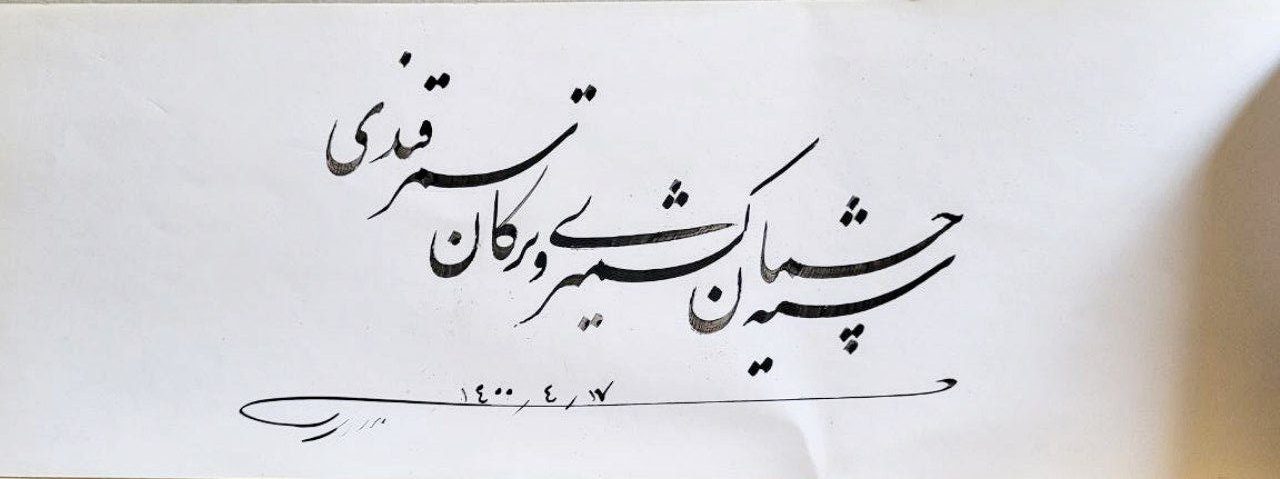 سیه چشمان کشمیری و ترکان سمرقندی
۱۴۰۰/۴/۱۷